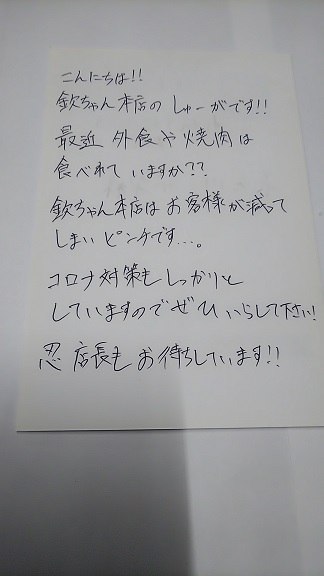 こんにちは!!
欽ちゃん本店の しゅーがです!!
最近 外食や焼肉は
食べれて いますか??
欽ちゃん本店は お客様が減って
しまい ピンチです…。
コロナ対策も しっかりと
していますので ぜひ いらして下さい!
忍 店長も お待ちしています!!